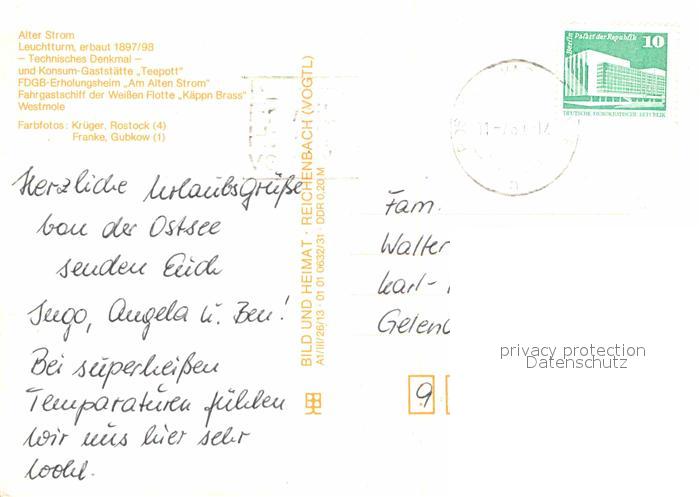 Alter Strom
Leuchtturm, erbaut 1897/98
– Technisches Denkmal –
und Konsum-Gaststätte „Teepott"
FDGB-Erholungsheim „Am Alten Strom"
Fahrgastschiff der Weißen Flotte „Käppn Brass"
Westmole
Farbfotos: Krüger, Rostock (4)
Franke, Gubkow (1)
Herzliche Urlaubsgrüße
von der Ostsee
senden Euch
Ingo, Angela u. Ben!
Bei superheißen
Temparaturen fühlen
wir uns hier sehr
wohl.
BILD UND HEIMAT · REICHENBACH (VOGTL)
A1/III/26/13 · 01 01 0632/31 · DDR 0,20 M
Berlin Palast der Republik
10
DEUTSCHE DEMOKRATISCHE REPUBLIK
Fam.
Walter
Karl-
Gelen
9
privacy protection
Datenschutz